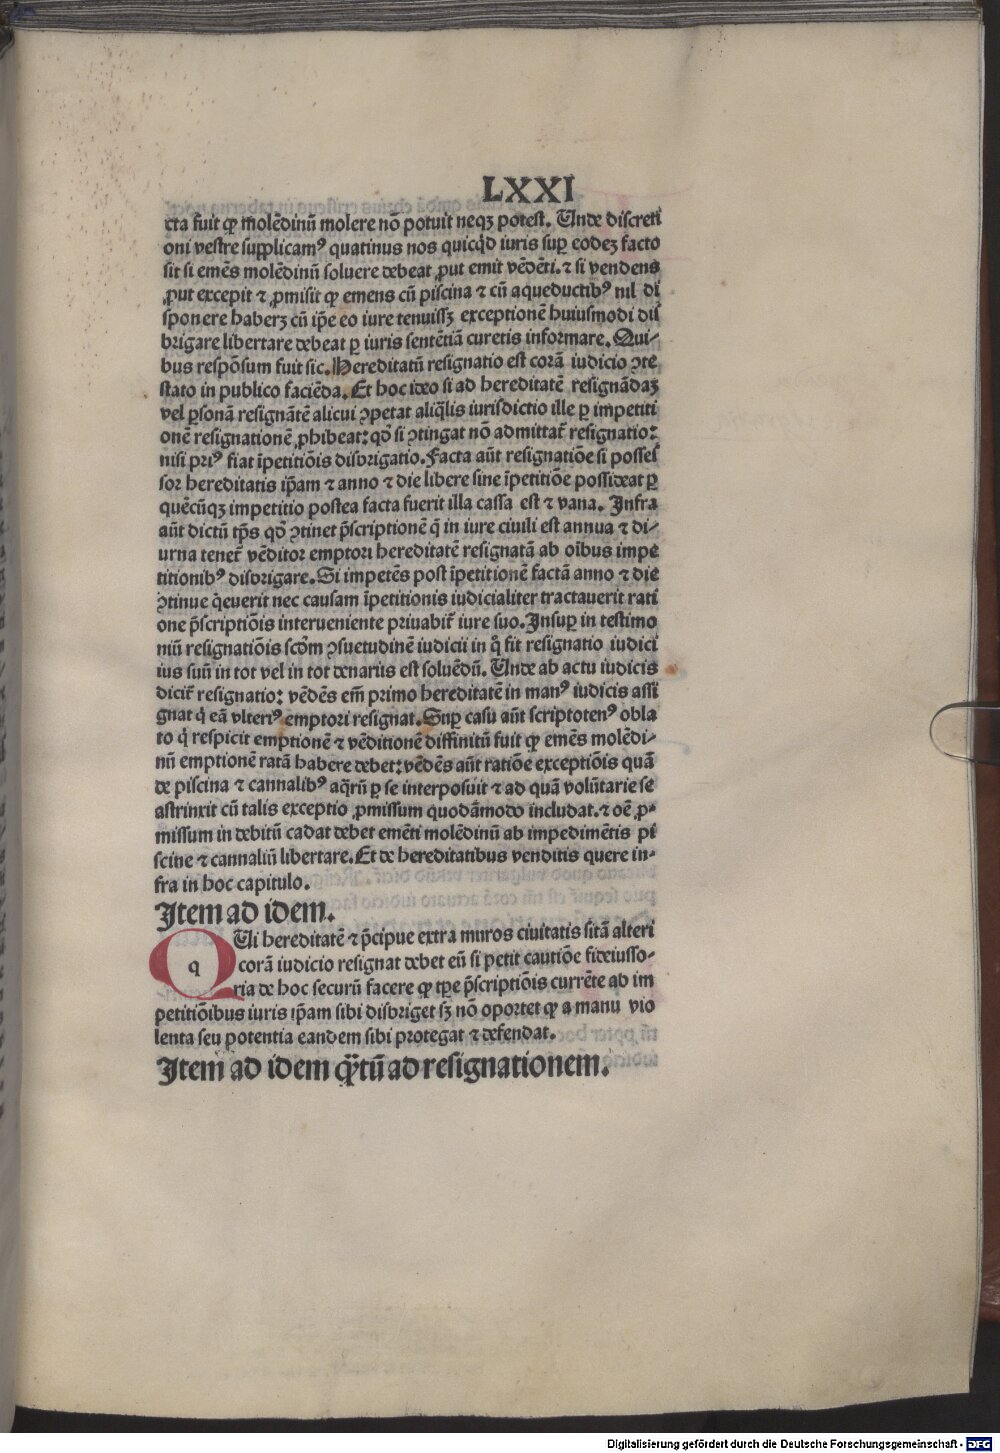 LXXI
cta fuit qꝫ molēdinū molere nō potuit neqꝫ potest. Unde discreti
oni vestre supplicamꝰ quatinus nos quicqͥd iuris suꝑ eodeꝫ facto
sit si emēs molēdinū soluere debeat ꝓut emit vēdēti. ⁊ si vendens
ꝓut excepit ⁊ ꝓmisit qꝫ emens cū piscina ⁊ cū aqueductibꝰ nil di
sponere haberꝫ cū ip̄e eo iure tenuissꝫ exceptionē huiusmodi dis
brigare libertare debeat ꝑ iuris sentētiā curetis informare. Qui-
bus respōsum fuit sic. Hereditatū resignatio est corā iudicio ↄte
stato in publico faciēda. Et hoc ideo si ad hereditatē resignādaꝫ
vel ꝑsonā resignātē alicui ↄpetat aliq̄lis iurisdictio ille ꝑ impetiti
onē resignationē ꝓhibeat: qd̓ si ↄtingat nō admittat᷑ resignatio:
nisi priꝰ fiat īpetitiōis disbrigatio. Facta aūt resignatiōe si posses
sor hereditatis ip̄am ⁊ anno ⁊ die libere sine īpetitiōe possideat ꝑ
quēcūqꝫ impetitio postea facta fuerit illa cassa est ⁊ vana. Infra
aūt dictū tp̄s qd̓ ↄtinet p̄scriptionē q̄ in iure ciuili est annua ⁊ di-
urna tenet᷑ vēditor emptori hereditatē resignatā ab oībus impe
titionibꝰ disbrigare. Si impetēs post īpetitionē factā anno ⁊ die
ↄtinue qͥeuerit nec causam īpetitionis iudicialiter tractauerit rati
one p̄scriptiōis interueniente priuabit᷑ iure suo. Insuꝑ in testimo
niū resignatiōis scd̓m ↄsuetudinē iudicii in qͣ fit resignatio iudici
ius suū in tot vel in tot denariis est soluēdū. Unde ab actu iudicis
dicit᷑ resignatio: vēdēs em̄ primo hereditatē in manꝰ iudicis assi
gnat qͥ eā vlteriꝰ emptori resignat. Suꝑ casu aūt scriptotenꝰ obla
to qͥ respicit emptionē ⁊ vēditionē diffinitū fuit qꝫ emēs molēdi-
nū emptionē ratā habere debet: vēdēs aūt ratiōe exceptiōis quā
de piscina ⁊ cannalibꝰ aq̄rū ꝑ se interposuit ⁊ ad quā volūtarie se
astrinxit cū talis exceptio ꝓmissum quodāmodo includat. ⁊ oē ꝓ-
missum in debitū cadat debet emēti molēdinū ab impedimētis pi
scine ⁊ cannaliū libertare. Et de hereditatibus venditis quere in-
fra in hoc capitulo.
Item ad idem.
QUi hereditatē ⁊ p̄cipue extra muros ciuitatis sitā alteri
corā iudicio resignat debet eū si petit cautiōe fideiusso-
ria de hoc securū facere qꝫ tꝑe p̄scriptiōis currēte ab im
petitiōibus iuris ip̄am sibi disbriget sꝫ nō oportet qꝫ a manu vio
lenta seu potentia eandem sibi protegat ⁊ defendat.
Item ad idem qͣtū ad resignationem.
Digitalisierung gefördert durch die Deutsche Forschungsgemeinschaft - DFG